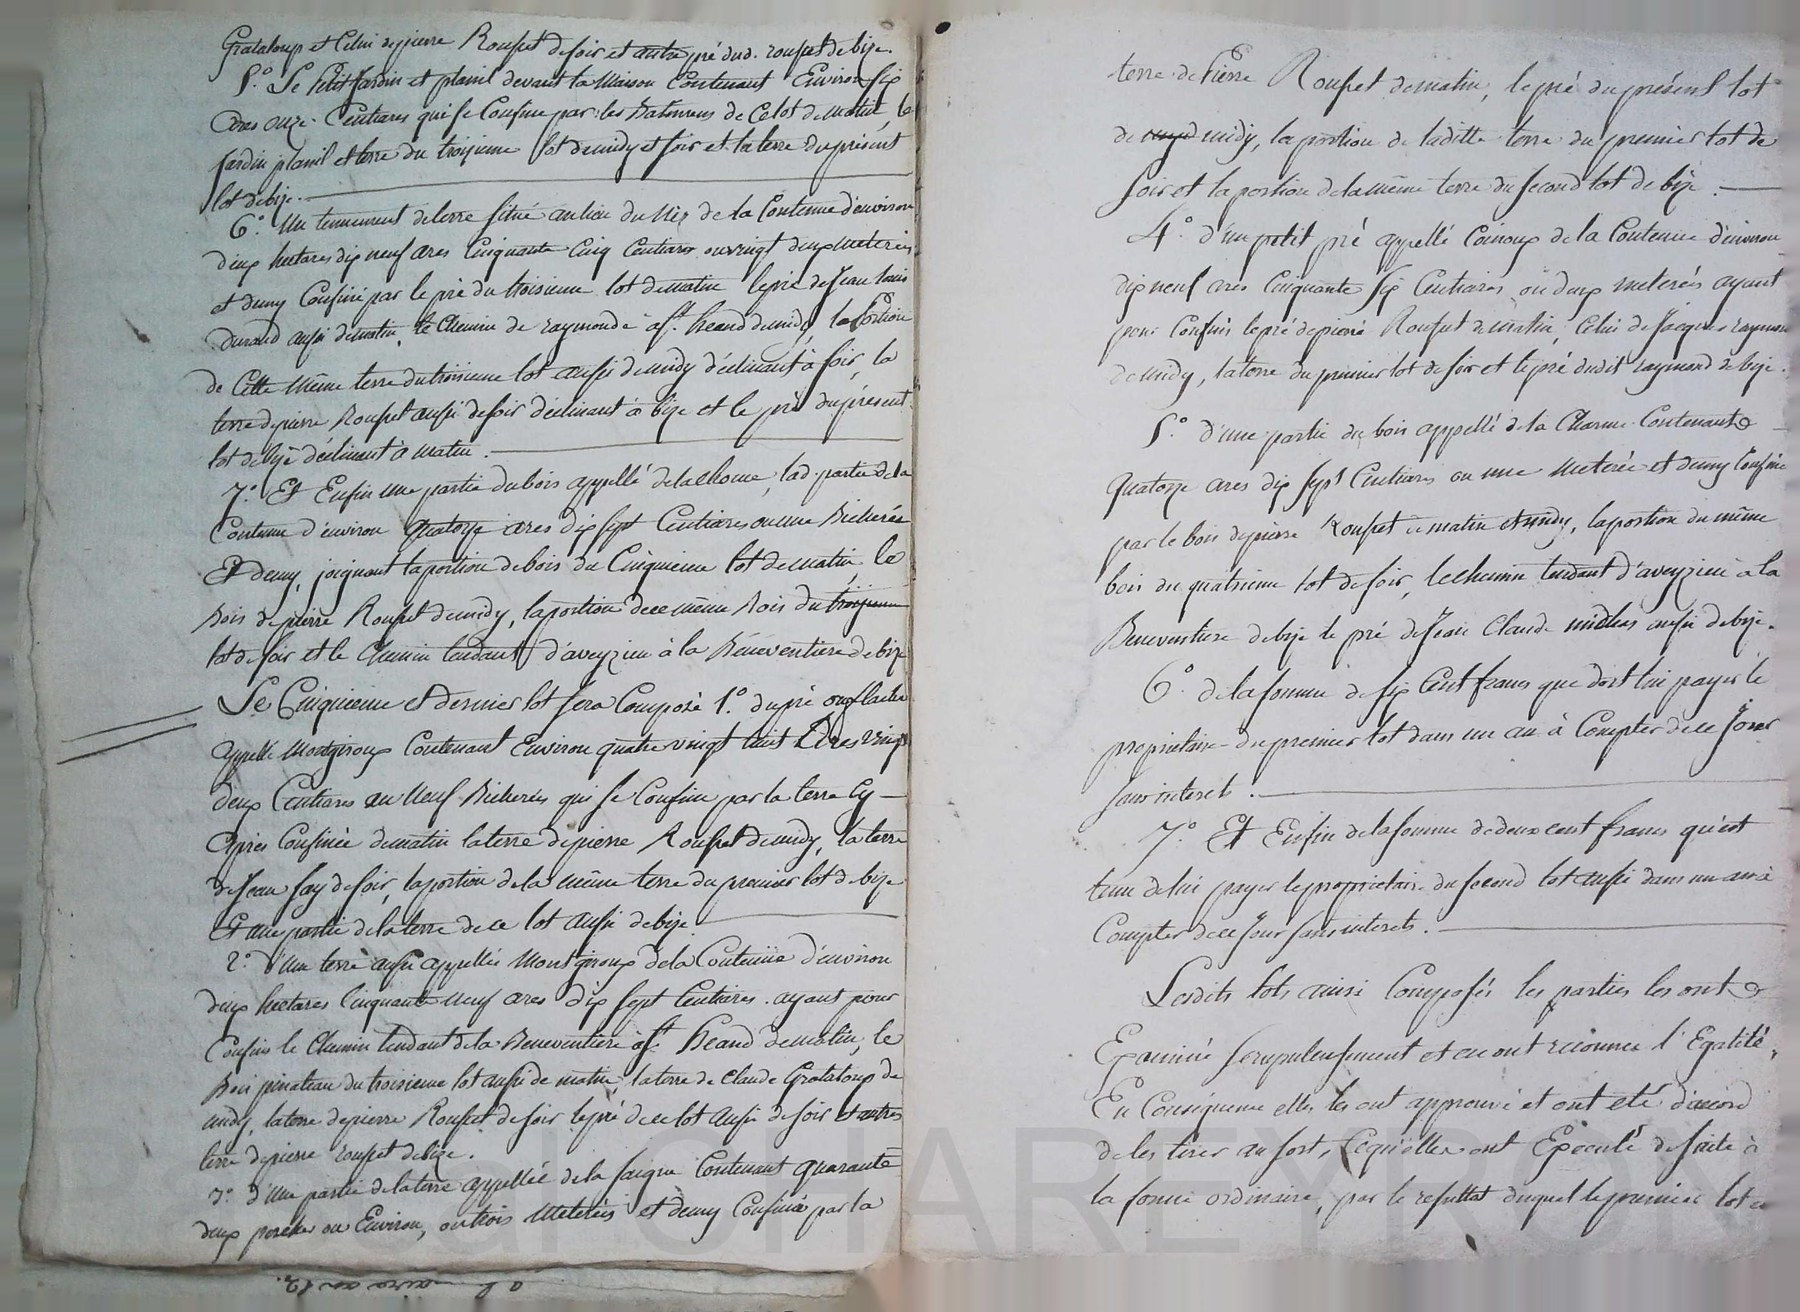 Grataloup et Celui de pierre Rouset de soir et autre pré dud. rouset de bize.
5.° Le Petit Jardin et plassil devant la Maison Contenant Environ six
ares onze Centiares qui se Confine par les Batimens de Celot de matin, le
jardin plassil et terre du troisieme lot de midy et soir et la terre du présent
lot de bize.
6.° Un tennement de terre situé au lieu du de la Contenue d'environ
deux hectares dix neuf ares Cinquante Cinq Centiares ou vingt deux meterées
et demy Confiné par le pré du troisieme lot de matin le pré de Jean louis
Durand aussi de matin, le Chemin de raymonde à st. heand de midy la Portion
de Cette Même terre du troisieme lot aussi de midy déclinant à soir, la
terre de pierre Rouset aussi de soir déclinant à bize et le pré du présent
lot de bize déclinant à matin.
7.° Et Enfin une partie du bois appellé de la charme, lad. partie de la
Contenue d'environ quatorze ares dix sept Centiares ou une Bicherée
Et demy, joignant la portion de bois du Cinquieme lot de matin le
Bois de pierre Rouset de midy, la portion de ce même Bois du troisieme
lot de soir et le Chemin tendant d'aveyzieu à la Béneventiere de bize
Le Cinquieme et dernier lot sera Composé 1.° du pré ou
appellé Montgiroux Contenant Environ quatre vingt huit Ares vingt
deux Centiares ou Neuf Bicherées qui se Confine par la terre Cy
Après Confinée de matin la terre de pierre Rouset de midy, la terre
de Jean fay de soir, la portion de la même terre du premier lot de bize
Et une partie de la terre de ce lot aussi de bize
2.° d'Une terre aussi appellée Montgiroux de la Contenue d'environ
deux hectares Cinquante Neuf ares dix sept Centiares ayant pour
Confins le Chemin tendant de la Beneventiere à st. heand de matin, le
Bois pinateau du troisieme lot aussi de matin, la terre de Claude Grataloup de
midy, la terre de pierre Rouset de soir le pré de ce lot aussi de soir et autre
terre de pierre rouset de bize.
3.° d'Une partie de la terre appellée de la saigne Contenant quarante
deux ou Environ, ou trois Meterées et demy Confinée par la
terre de Pierre Rouset de matin, le pré du présent lot
de midy, la portion de laditte terre du premier lot de
soir et la portion de la même terre du second lot de bize.
4.° d'un petit pré appellé Coinoux de la Contenue d'environ
dix neuf ares Cinquante six Centiares ou deux meterées ayant
pour Confins le pré de pierre Rouset de matin, Celui de Jacques raymond
de midy, la terre du premier lot de soir et le pré dudit raymond de bize.
5.° d'une partie du bois appellé de la Charme Contenant
quatorze ares dix sept Centiares ou une Meterée et demy Confiné
par le bois de pierre Rouset de matin et midy, la portion du même
bois du quatrieme lot de soir, le chemin tendant d'aveyzieu à la
Beneventiere de bize le pré de Jean Claude aussi de bize.
6.° de la somme de six Cent francs que doit lui payer le
propriétaire du premier lot dans un an à Compter de ce Jour
sans interet.
7.° Et Enfin de la somme de deux cent francs qu'est
tenu de lui payer le proprietaire du second lot aussi dans un an à
Compter de ce Jour sans interets.
Lesdits lots ainsi Composés les parties les ont
Examiné scrupuleusement et en ont reconnu l'Egalité,
En Conséquence elles les ont approuvé et ont eté d'accord
de les tirer au sort, Cequ'elles ont Execulé de suite à
la forme ordinaire, par le resultat duquel le premier lot